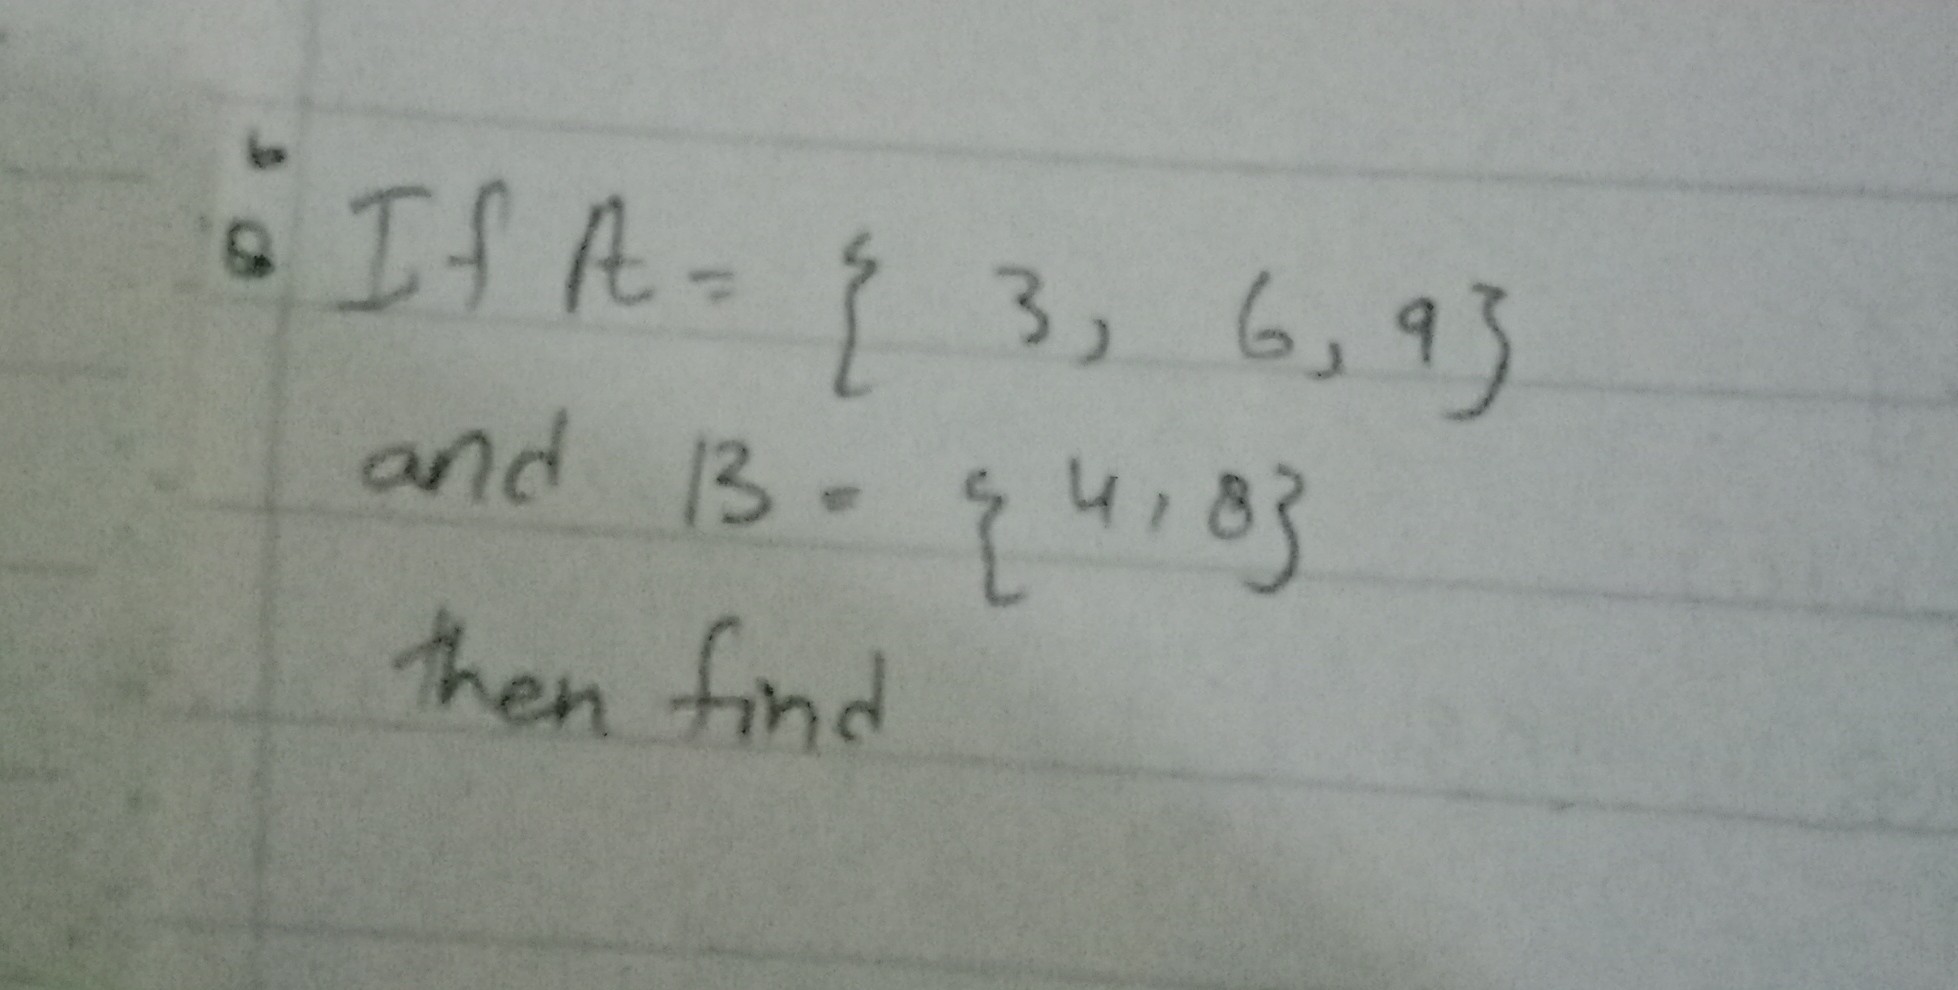 If A = { 3, 6, 9}
and B = { 4, 8}
then find